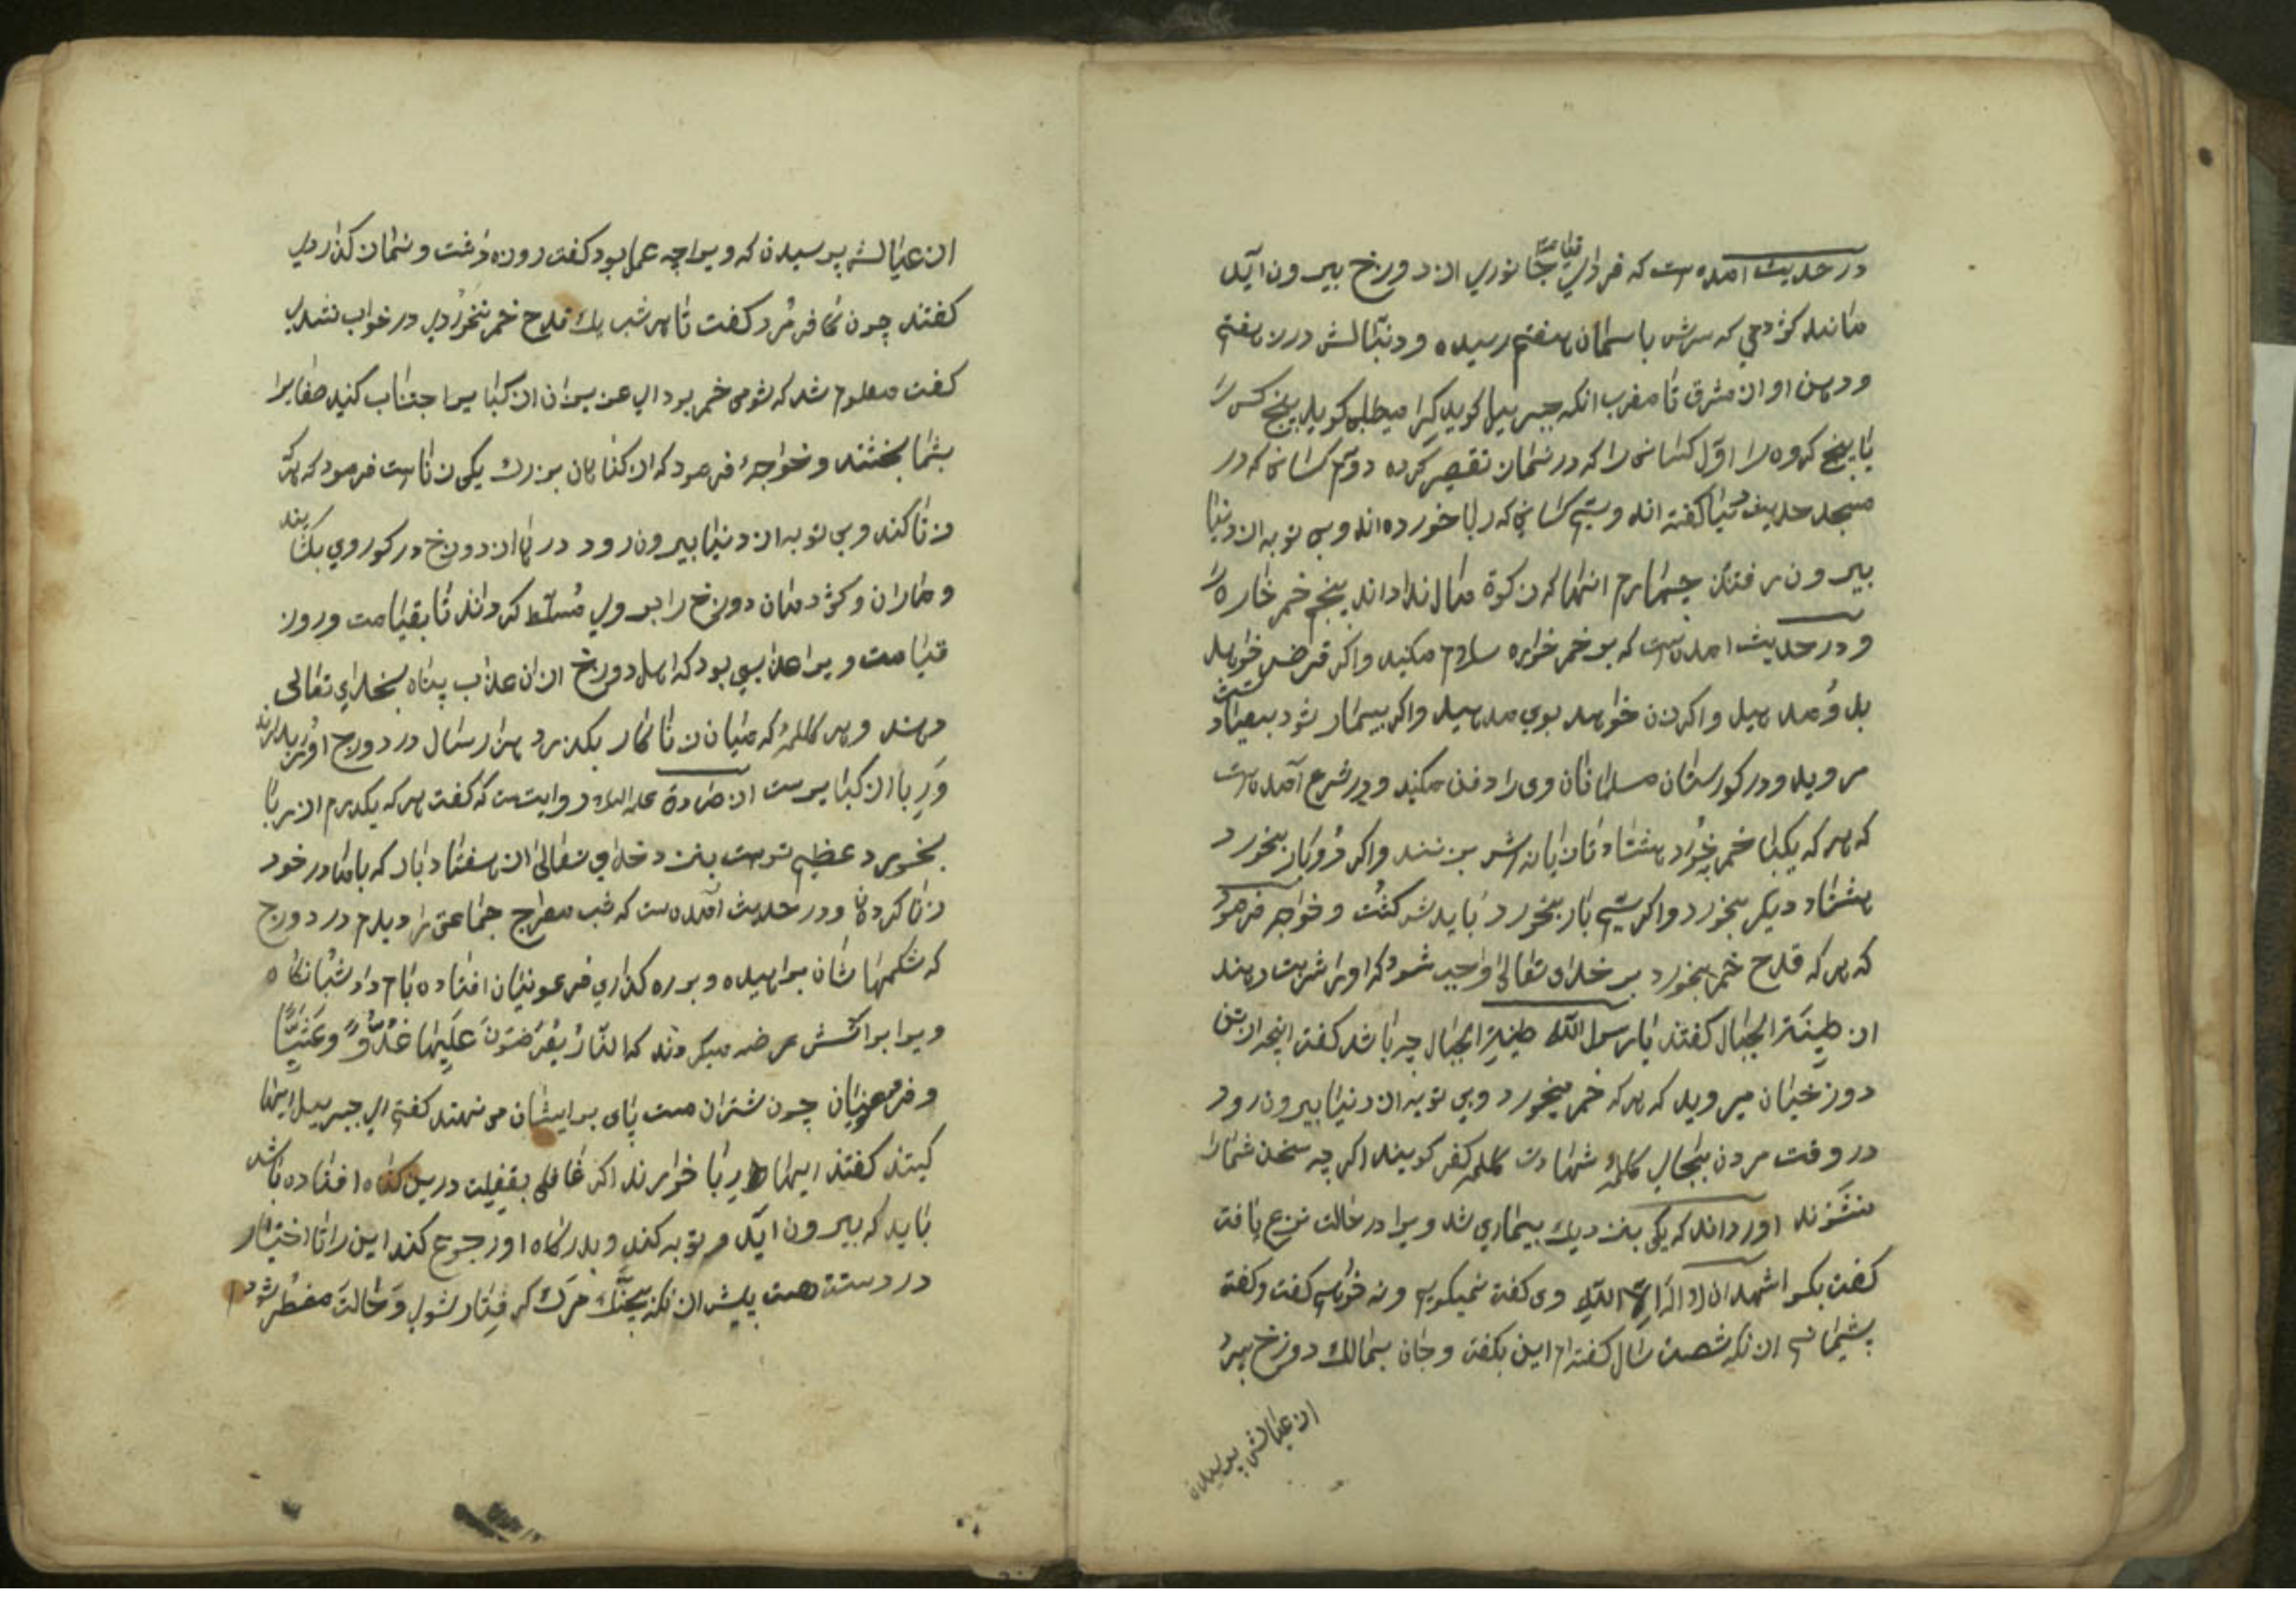 در حدیث امده است که فردای قیامت جانوری از دوزخ بیرون آید
مانند کژدمی که سرش باسمان هفتم رسیده و دنبالش در زمین هفتم
و دهن او از مشرق تا مغرب انکه جبرییل کوید کرا میطلبی کوید پنج کس را
یا پنج کروه را اوّل کسانی را که در نماز تقصیر کرده دوم کسانی که در
مسجد حدیث دنیا کفته اند و سیم کسانی که ربا خورده اند و بی توبه از دنیا
بیرون رفتند چهارم انها که زکوة مال نداداند پنجم خمر خاره را
و در حدیث امده است که بر خمر خواره سلام مکنید و اکر قرض خواهد
بدو مدهید و اکر زن خواهد بوی مدهید و اکر بیمار شود بعیادتش
مروید و در کورستان مسلمانان وی را دفن مکنید و در شرع آمده است
که هر که یکبار خمر بخورد هشتاد تازیانه اش بزنند و اکر دوبار بخورد
هشتاد دیکر بخورد و اکر سیم بار بخورد بایدش کشت و خواجه فرمود
که هر که قدح خمر بخورد بر خدای تعالی واجب شود که اورا شربت دهند
از طینة الجبال کفتند یا رسول الله طینة الجبال چه باشد کفت انچه از تن
دوزخیان میروید که هر که خمر میخورد و بی توبه از دنیا بیرون رود
در وقت مردن بجای کلمهٔ شهادت کلمه کفر کویند اکر چه سخن شما را
نشنوند اورداند که یکی بنزدیک بیماری شد ویرا در حالت نزع یافت
کفت بکو اشهد ان لا اله الا الله وی کفت نمیکویم و نه خوهم کفت و کفته
پشیمانم از انکه شصت سال کفته ام این بکفت و جان بمالک دوزخ سپرد
از عیالش پرسیدن
از عیالش پرسیدن که ویرا چه عمل بود کفت روزه داشت و نماز کذاردی
کفتند چون کافر مُرد کفت تا هر شب یک قدح خمر نخوردی در خواب نشدی
کفت معلوم شد که شومی خمر بود ای عزیزان از کبایر اجتناب کنید صغایرا
بشما بخشند و خواجهٔ فرمود که از کناهان بزرک یکی زنا است فرمود که هر که
زنا کند و بی توبه از دنیا بیرون رود درهای دوزخ در کور وی بکشایند
و ماران و کژدمان دوزخ را بر وی مُسلّط کرداند تا بقیامت و روز
قیامت ویرا عذابی بود که اهل دوزخ از ان عذاب پناه بخدای تعالی
دهند و هر کلمهٔ که میان زناکار بکذرد هزار سال در دوزخ اورا بدارند
وَرِبا از کبایرست از علیه السلام روایت است که کفت هر که یکدرم از ربا
بخورد عظیم ترست بنزد خدای تعالی از هفتاد بار که با مادر خود
زنا کرده و در حدیث آمده است که شب معراج جماعتی را دیدم در دوزخ
که شکمها شان براهیده و بر ره کذاری فرعونیان افتاده بامداد شبانکاه
ویرا بر اتش عرضه میکردند که النّارُ یُعْرَضُونَ عَلَیْهَا غُدُوًّ وَعَشِیًّا
و فرعونیان چون شتران مست پای بر ایشان می نهند کفتم ای جبرییل اینها
کیند کفتند اینها ربا خوارند اکر غافلی بغفلت درین کناه افتاده باشد
باید که بیرون اید و توبه کند و بدرکاه او رجوع کند این را تا اختیار
در دستت هست پیش از انکه بچنک مَرَک کرفتار شوی و حالت مضطر شود